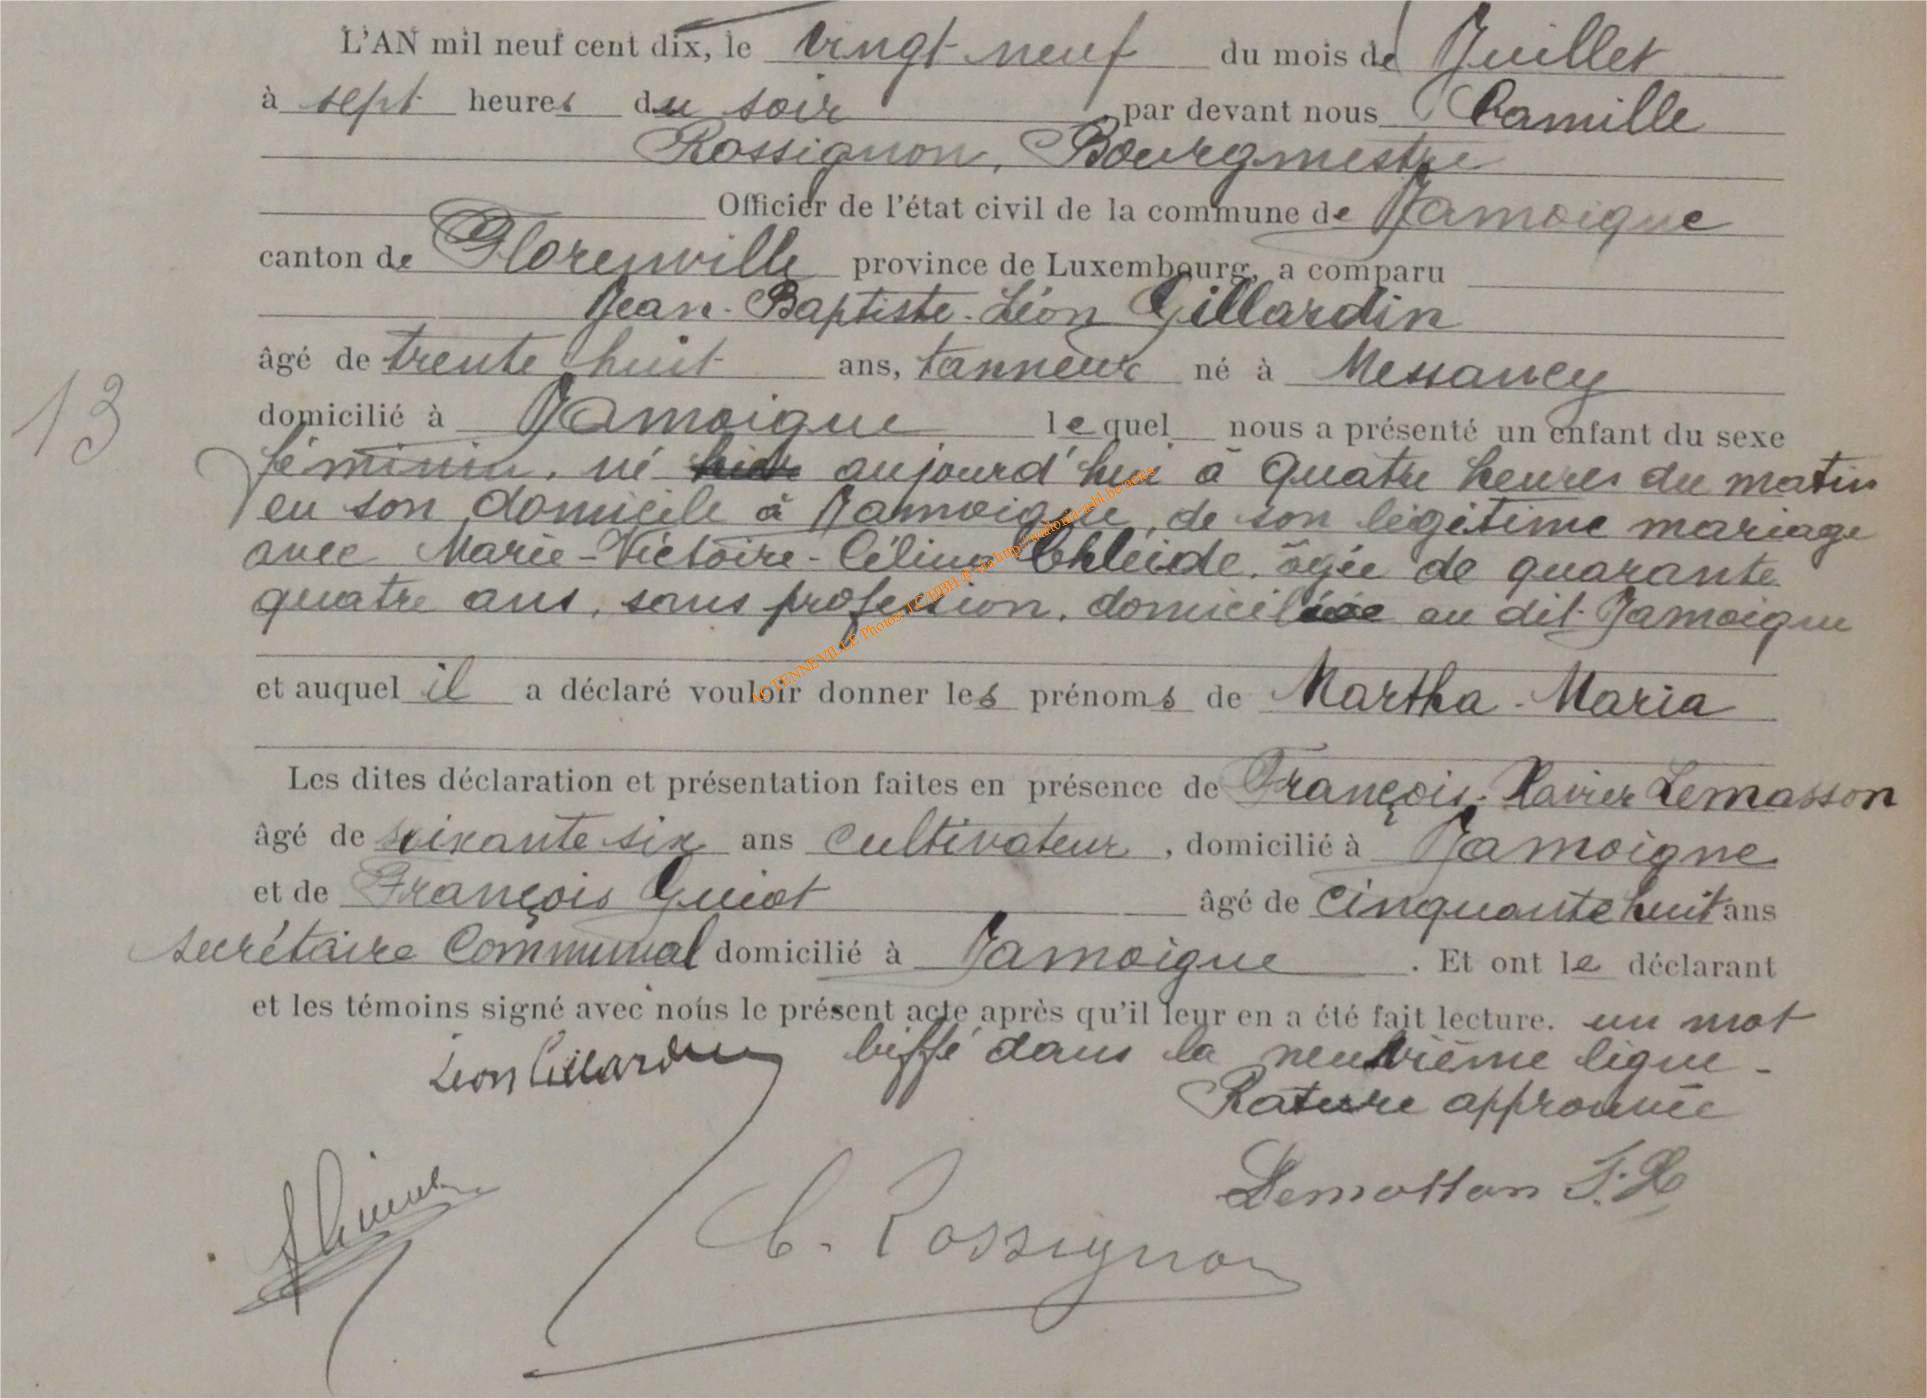 L'AN mil neuf cent dix, le vingt-neuf du mois de Juillet
à sept heures du soir par devant nous Camille
Rossignon, Bourgmestre
Officier de l'état civil de la commune de Jamoigne
canton de Florenville province de Luxembourg, a comparu
Jean-Baptiste-Léon Gillardin
âgé de trente huit ans, tanneur né à Messancy
13
domicilié à Jamoigne lequel nous a présenté un enfant du sexe
féminin, né hier aujourd'hui à quatre heures du matin
en son domicile à Jamoigne, de son légitime mariage
avec Marie-Victoire-Célina Chleide, âgée de quarante
quatre ans, sans profession, domiciliée au dit Jamoigne
et auquel il a déclaré vouloir donner les prénoms de Martha-Maria
Les dites déclaration et présentation faites en présence de François-Xavier Lemasson
âgé de soixante six ans cultivateur, domicilié à Jamoigne
et de François Guiot âgé de cinquante huit ans
secrétaire Communal domicilié à Jamoigne. Et ont le déclarant
et les témoins signé avec nous le présent acte après qu'il leur en a été fait lecture. un mot
biffé dans la neuvième ligne -
Léon Gillardin
Rature approuvée
Lemasson F. X
C. Rossignon